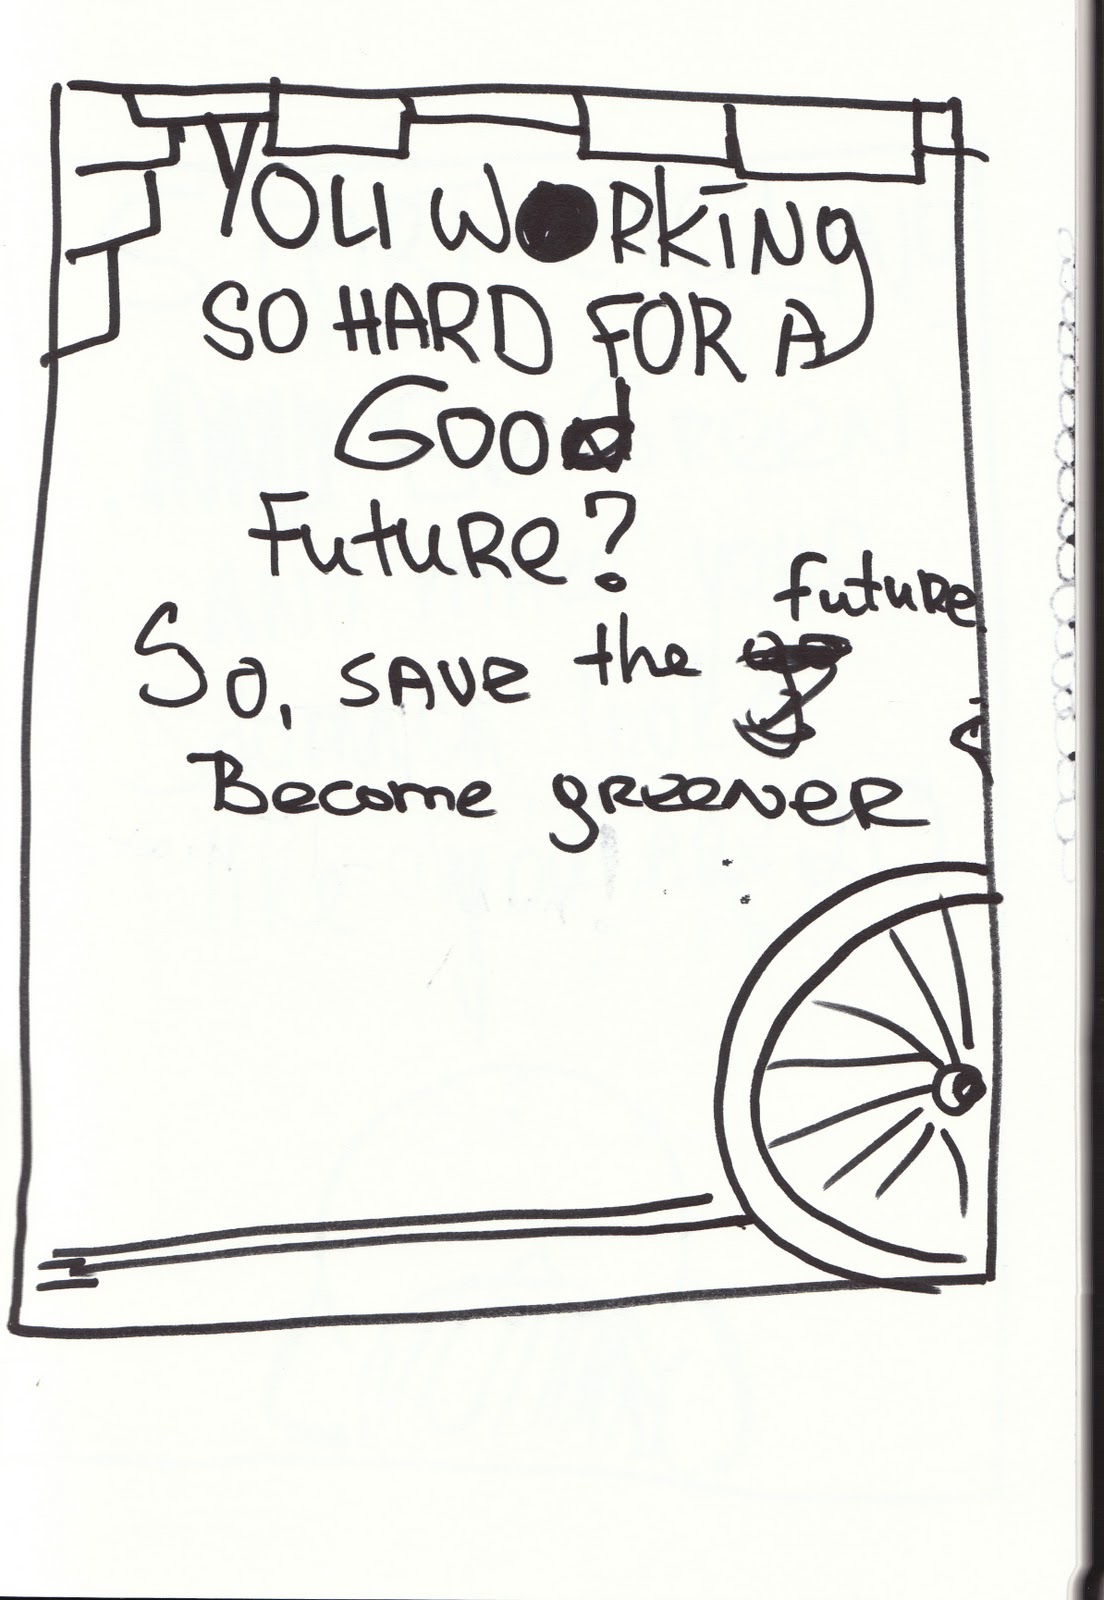 YOU WORKING
SO HARD FOR A
GOOd
FutuRe?
So, SAVe the future
Become gReeNeR